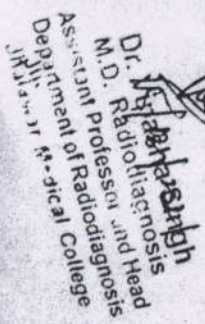 Dr. Singh
M.D. Radiodiagnosis
Assistant Professor and Head
Department of Radiodiagnosis
Medical College